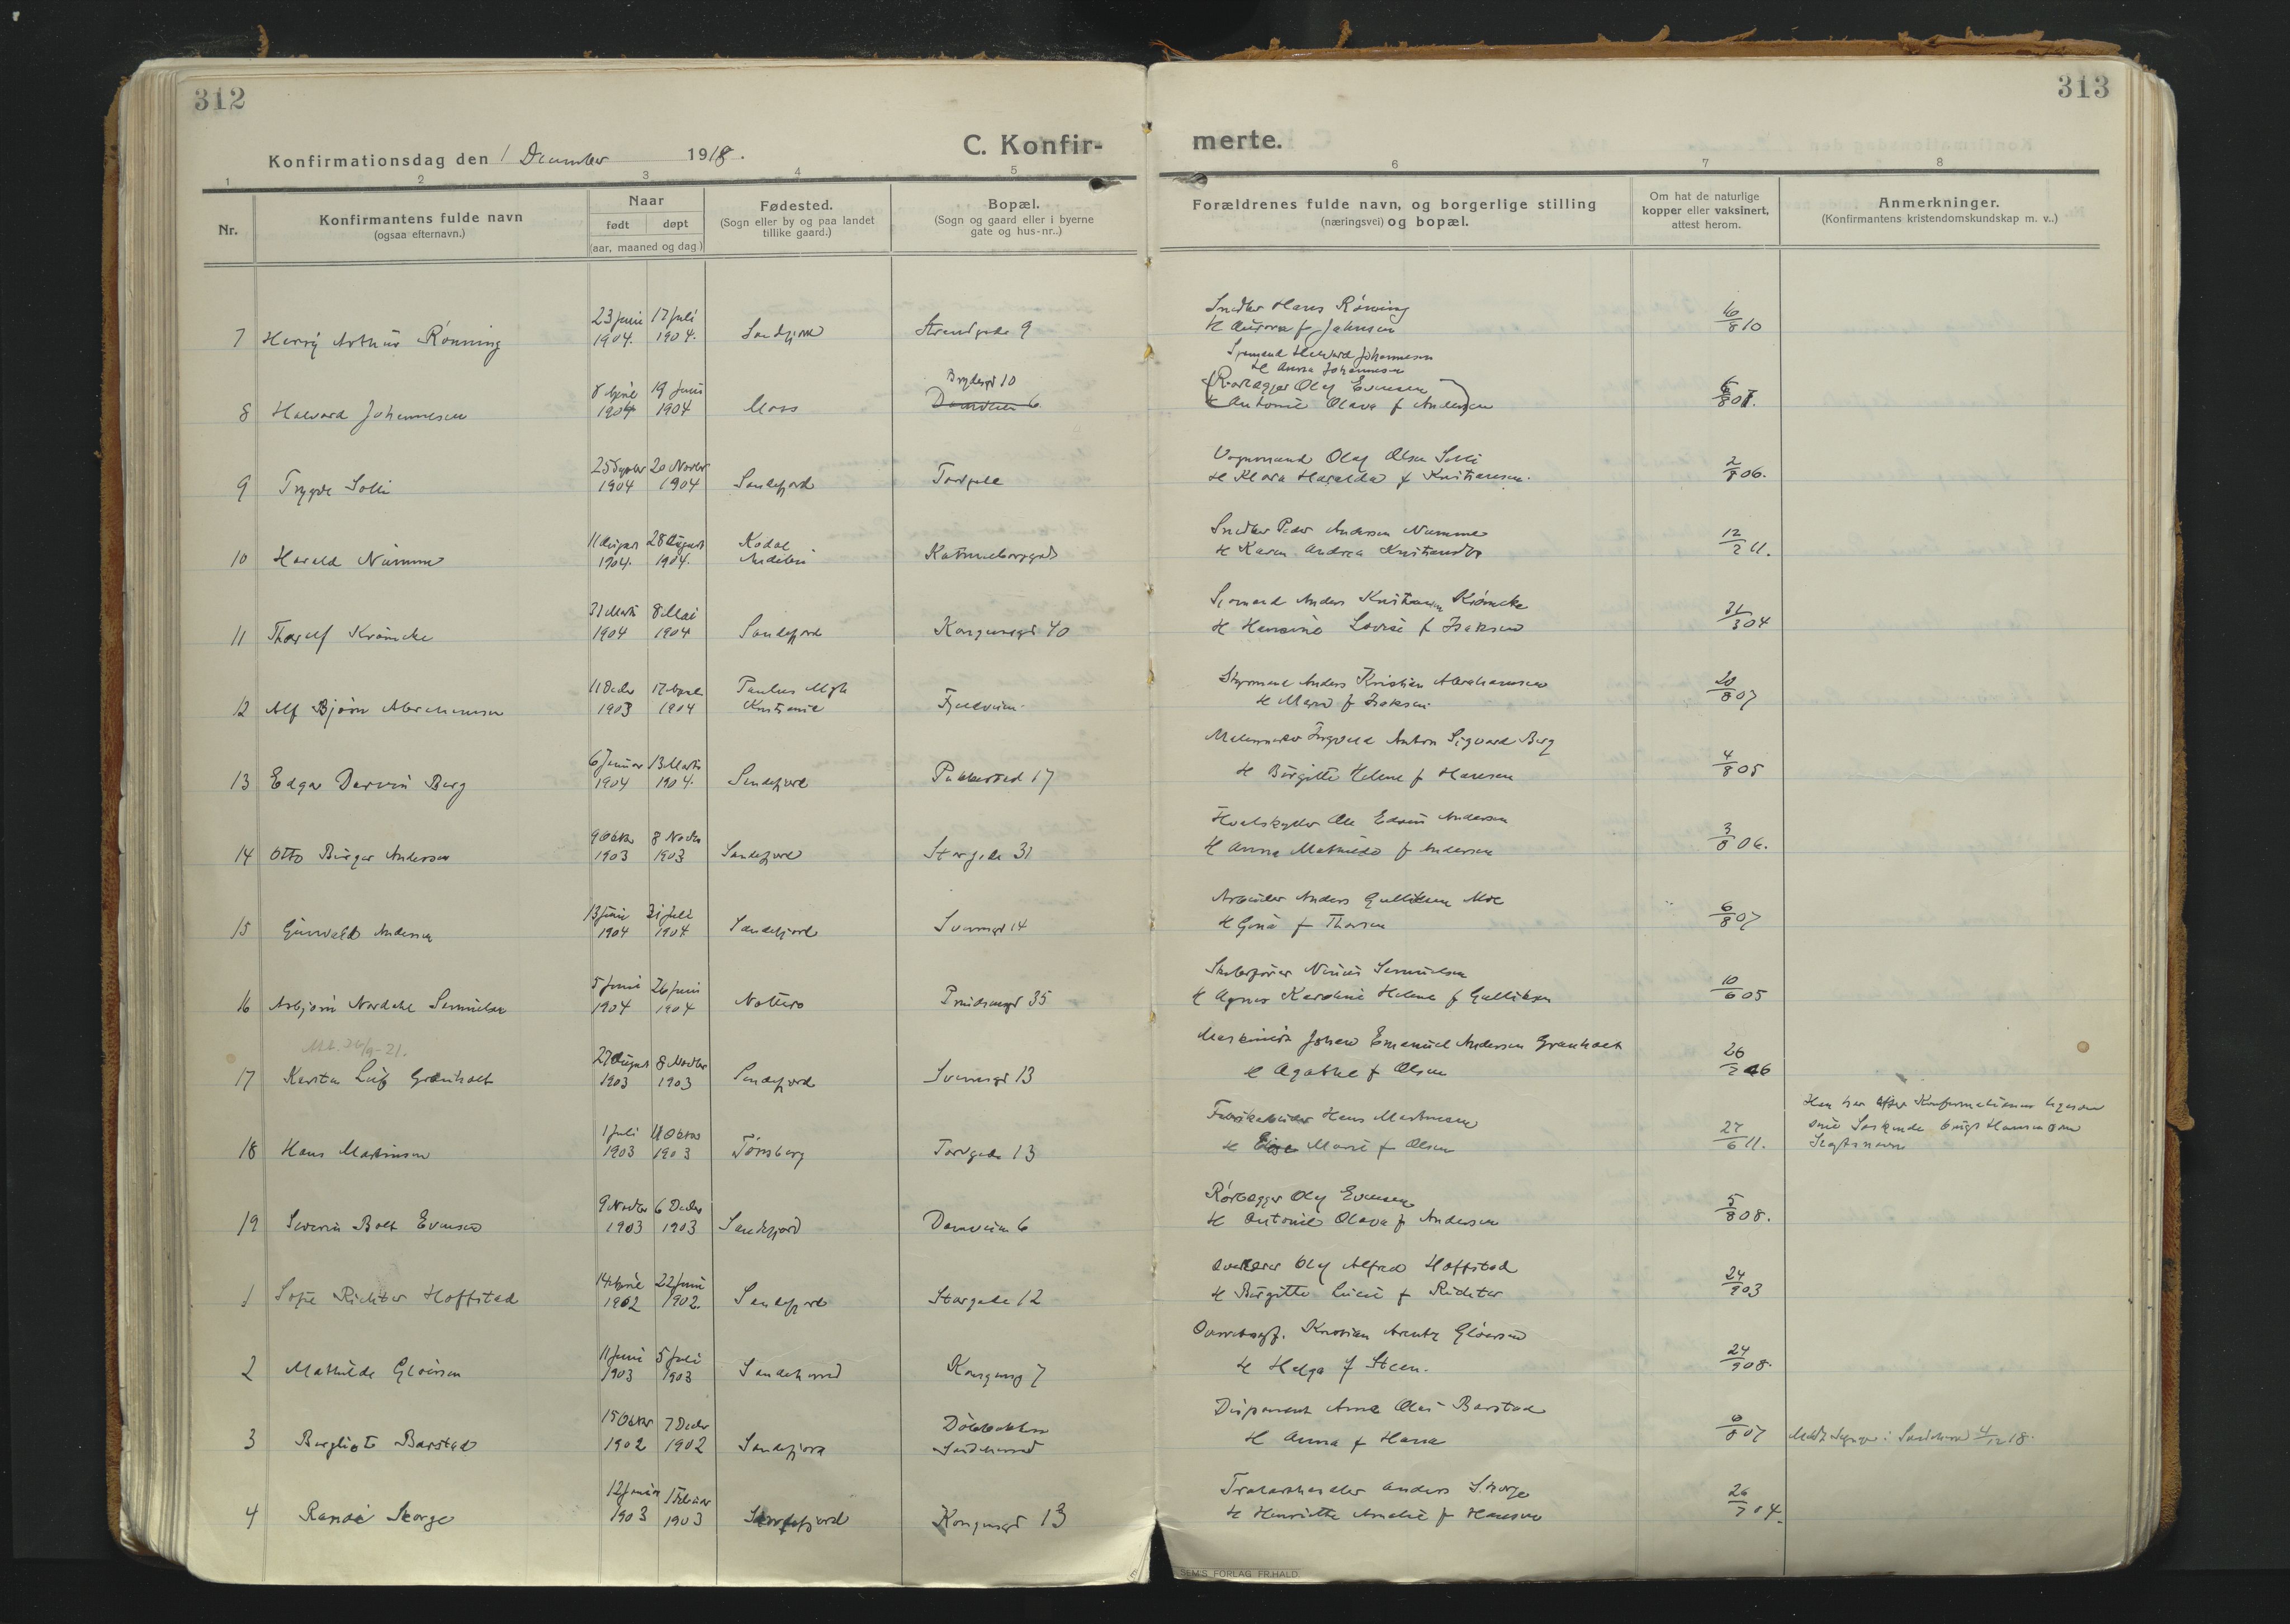 312
313
C. Konfir-
merte.
Konfirmationsdag den 1 December 1918.
1 2 3 4 5
6 7 8
Nr.
Konfirmantens fulde navn
(ogsaa efternavn.)
Naar
født døpt
(aar, maaned og dag)
Fødested.
(Sogn eller by og paa landet
tillike gaard.)
Bopæl.
(Sogn og gaard eller i byerne
gate og hus-nr..)
Forældrenes fulde navn, og borgerlige stilling
(næringsvei) og bopæl.
Om hat de naturlige
kopper eller vaksinert,
attest herom.
Anmerkninger.
(Konfirmantens kristendomskundskap m. v..)
Snedker Hans Rönning
23 juni 17 juli
7 Harry Arthur Rönning 1904. 1904. Sandefjord Strandgade 9 & Aurora f. Johnsen 16/8 10
Sjömand Halvard Johannesen
& Anna Johannesen
8 April 19 juni Brydesgt 10 (Rörlægger Olaf Evensen
8 Halvard Johannesen 1904 1904 Moss Damveien 6 & Antonie Olava f. Andersen) 6/8 07.
20 Novbr Vognmand Olaf Olsen Solli
9 Trygve Solli 1904 1904 Sandefjord Torvgade & Klara Haralda f. Kristiansen. 2/8 06.
11 August 28 August Kodal Snedker Peder Andersen Numme
10 Harald Numme 1904. 1904. Andebu & Karen Andrea 12/2 11.
31 Marts 8 Mai Sjömand Anders Kristiansen Krömcke
11 Thorolf Krömcke 1904 1904 Sandefjord Kongensgt 40 & Hansine Lovise f. Isaksen 31/3 04
11 Decbr 17 April Paulus Mgh Styrmand Anders Kristian Abrahamsen
12 Alf Björn Abrahamsen 1903 1904 Kristiania Fjeldveien & f. Isaksen 20/8 07
6 Januar 13 Marts Malermester Ingvald Anton Sigvard Berg
13 Edgar Darvin Berg 1904 1904. Sandefjord Pukkestad 17 & Birgitte Helene f. Hansen 4/8 05
9 Oktbr 8 Novbr Hvalskytter Ole Edvin Andersen
14 Otto Birger Andersen 1903 1903 Sandefjord Storgade 31 & Anna Mathilde f. Andersen 3/8 06.
13 juni 31 juli Arbeider Anders Gulliksen Moe
15 Gunvald Andersen 1904 1904 Sandefjord 14 & Gina f. Thorsen 6/8 07
5 juni 26 juni Samuelsen
16 Asbjörn Nordahl Samuelsen 1904 1904 Nötterö 35 & Agnes Karoline Helene f. Gulliksen 10/6 05
27 August 8 Novbr Maskinist Johan Emanuel Andersen Granholt
17 Karsten Leif Granholt 1903 1903 Sandefjord 13 & Agathe f. Olsen 26/2 06
1 juli 11 Oktbr Fabrikarbeider Hans Martinsen Han har efter Konfirmationen ligesom
18 Hans Martinsen 1903 1903 Tönsberg Torvgade 13 & Marie f. Olsen 27/6 11. sine Söskende Hansen som Slegtsnavn
9 Novbr 6 Decbr Rörlægger Olaf Evensen
19 Severin Evensen 1903 1903 Sandefjord Damveien 6 & Antonie Olava f. Andersen 5/8 08.
14 April 22 juni Overlærer Olaf Alfred Hoffstad
1 Sofie Richter Hoffstad 1902 1902. Sandefjord Storgade 12 & Birgitte Lucie f. Richter 24/9 03
11 juni 5 juli Kristian Arentz Glöersen
2 Mathilde Glöersen 1903 1903 Sandeherred Kongensg 7 & Helga f. Steen. 24/9 08.
15 Oktbr 7 Decbr Disponent Arne Barstad
3 Bergliot Barstad 1902 1902 Sandefjord Sandeherred & Anna f. 6/8 07 i Sandeherred 4/12 18.
12 januar 1 Februar Trælasthandler Anders Skorge
4 Randi Skorge 1903 1903 Sandefjord Kongensgt 13 & Henriette Amalie f. Hansen 26/7 04.
SEM'S FORLAG FR.HALD.